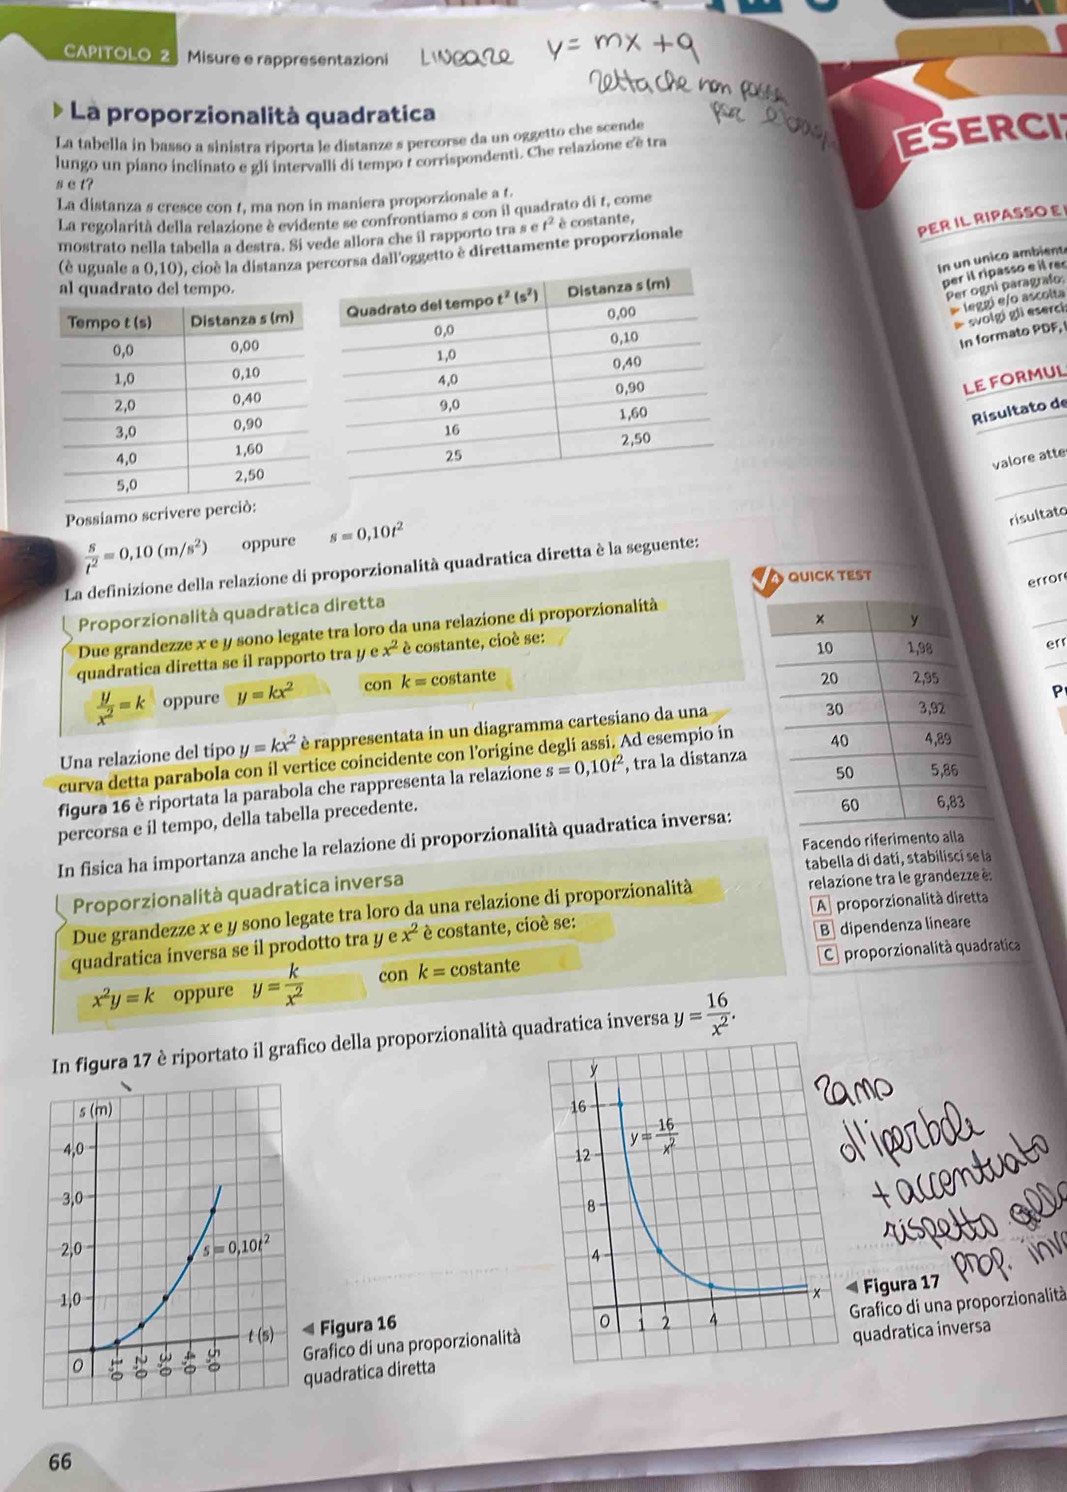 CAPITOLO 2 Misure e rappresentazioni
LINEARE y = mx + q
retta che non passa
per
La proporzionalità quadratica
La tabella in basso a sinistra riporta le distanze s percorse da un oggetto che scende
lungo un piano inclinato e gli intervalli di tempo t corrispondenti. Che relazione c'è tra
s e t?
La distanza s cresce con t, ma non in maniera proporzionale a t.
La regolarità della relazione è evidente se confrontiamo s con il quadrato di t, come
mostrato nella tabella a destra. Si vede allora che il rapporto tra s e t² è costante,
(è uguale a 0,10), cioè la distanza percorsa dall'oggetto è direttamente proporzionale
al quadrato del tempo.
Tempo t (s) Distanza s (m)
0,0 0,00
1,0 0,10
2,0 0,40
3,0 0,90
4,0 1,60
5,0 2,50
Quadrato del tempo t² (s²) Distanza s (m)
0,0 0,00
1,0 0,10
4,0 0,40
9,0 0,90
16 1,60
25 2,50
Possiamo scrivere perciò:
s/t² = 0,10 (m/s²) oppure s = 0,10t²
La definizione della relazione di proporzionalità quadratica diretta è la seguente:
Proporzionalità quadratica diretta
Due grandezze x e y sono legate tra loro da una relazione di proporzionalità
quadratica diretta se il rapporto tra y e x² è costante, cioè se:
y/x² = k oppure y = kx² con k = costante
Una relazione del tipo y = kx² è rappresentata in un diagramma cartesiano da una
curva detta parabola con il vertice coincidente con l'origine degli assi. Ad esempio in
figura 16 è riportata la parabola che rappresenta la relazione s = 0,10t², tra la distanza
percorsa e il tempo, della tabella precedente.
In fisica ha importanza anche la relazione di proporzionalità quadratica inversa:
Proporzionalità quadratica inversa
Due grandezze x e y sono legate tra loro da una relazione di proporzionalità
quadratica inversa se il prodotto tra y e x² è costante, cioè se:
x²y = k oppure y = k/x² con k = costante
In figura 17 è riportato il grafico della proporzionalità quadratica inversa y = 16/x².
s (m)
4,0
3,0
2,0
1,0
s = 0,10t²
t (s)
0 1,0 2,0 3,0 4,0 5,0
Figura 16
Grafico di una proporzionalità
quadratica diretta
y
16
12
8
4
y = 16/x²
x
0 1 2 4
ramo
d'iperbole
+ accentuato
rispetto alla
prop. inv
Figura 17
Grafico di una proporzionalità
quadratica inversa
4 QUICK TEST
x y
10 1,98
20 2,95
30 3,92
40 4,89
50 5,86
60 6,83
Facendo riferimento alla
tabella di dati, stabilisci se la
relazione tra le grandezze è:
A proporzionalità diretta
B dipendenza lineare
C proporzionalità quadratica
66
ESERCI
PER IL RIPASSO E
In un unico ambient
per il ripasso e il rec
Per ogni paragrafo:
leggi e/o ascolta
svolgi gli eserci
In formato PDF,
LE FORMUL
Risultato de
valore atte
risultato
error
err
P